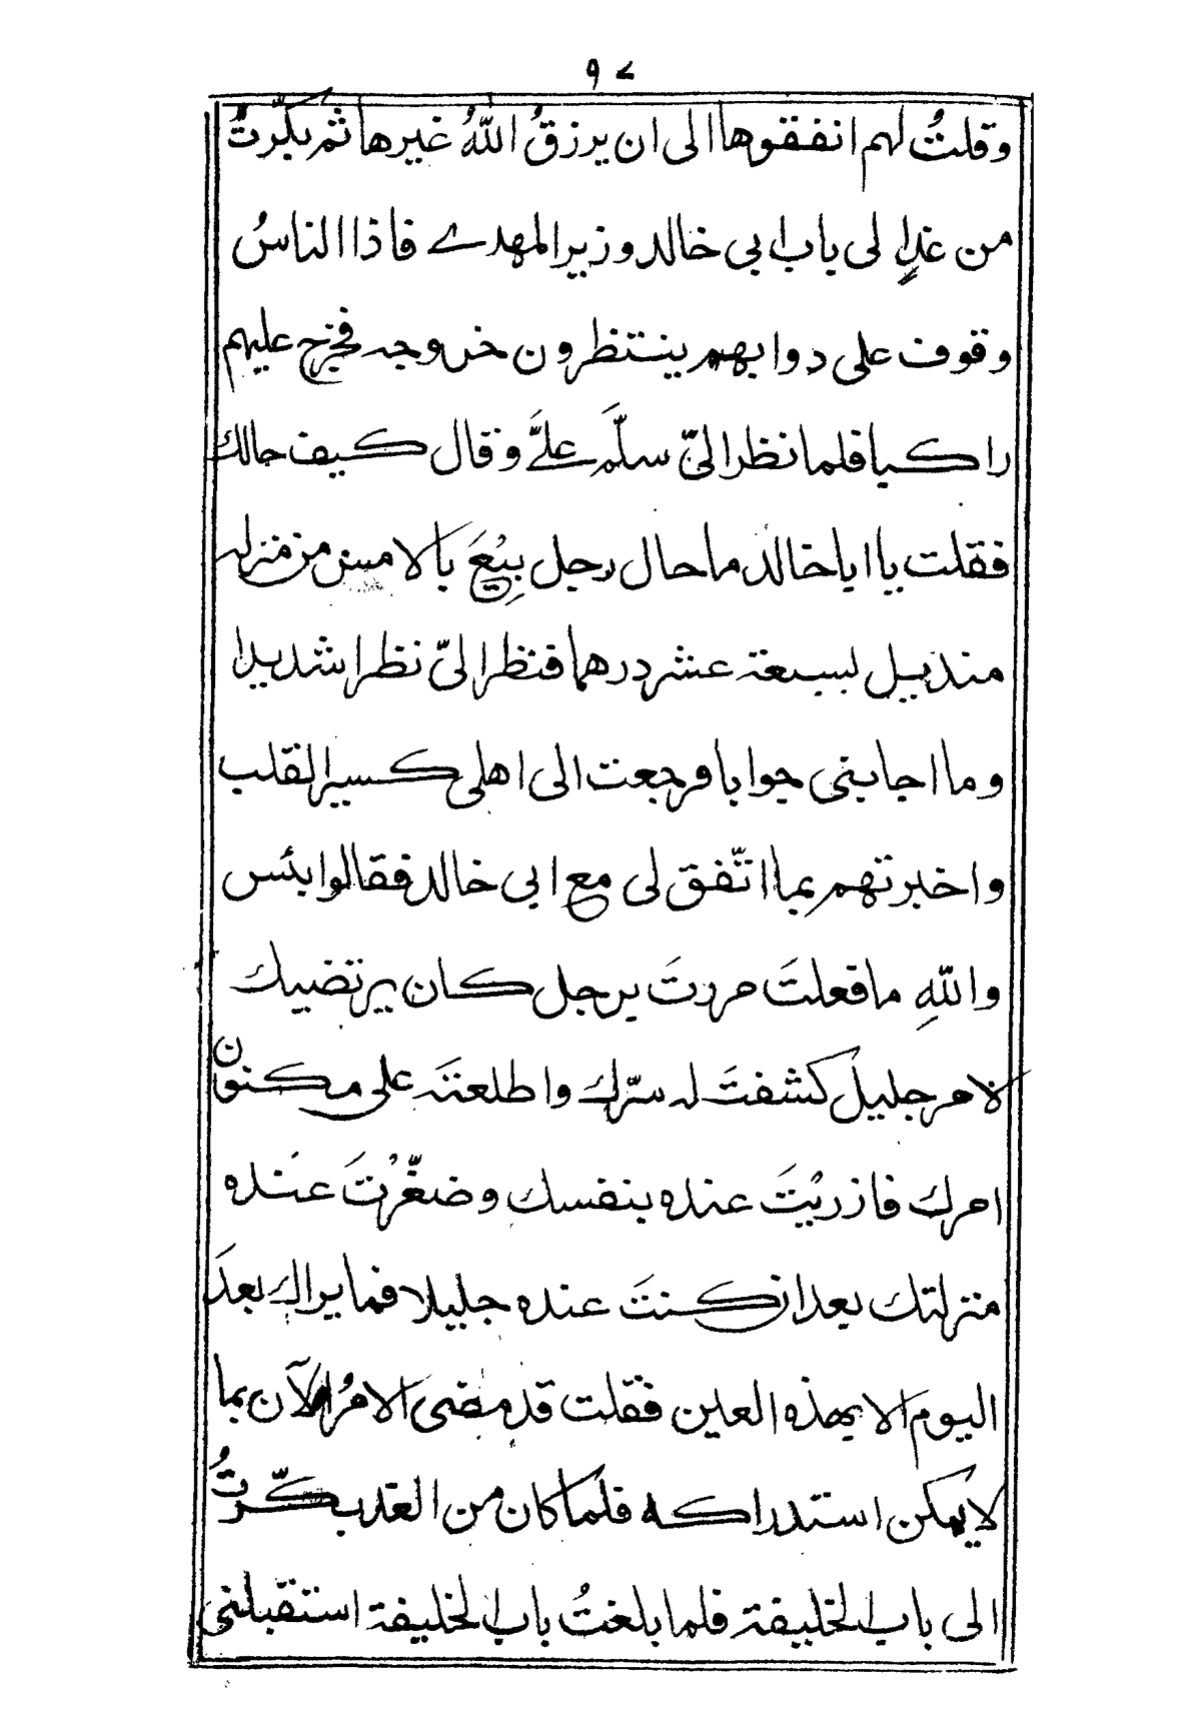 ٩٧
وقلتُ لهم انفقوها الى ان يرزقُ اللهُ غيرها ثم بكّرتُ
من غدٍ الى باب ابى خالد وزير المهدے فاذا الناسُ
وقوف على دوابهم ينتظرون خروجه فخرج عليهم
راكبا فلما نظر الىّ سلّمَ علىَّ وقال كيف حالك
فقلت يا ابا خالد ما حال رجل بِيْعَ بالامس من منزله
منديل بسبعة عشر درهما فنظر الىّ نظرا شديدا
وما اجابنى جوابا فرجعت الى اهلى كسير القلب
واخبرتهم بما اتّفق لى مع ابى خالد فقالوا بئس
واللهِ ما فعلتَ مررتَ برجل كان يرتضيك
لامر جليل كشفتَ له سرّك واطلعتَه على مكنون
امرك فازريْتَ عنده بنفسك وضغّرْتَ عنده
منزلتك بعد ان كنتَ عنده جليلا فما يراك بعدَ
اليوم الا بهذه العين فقلت قد مضى الامرُ الآن بما
لا يمكن استدراكه فلما كان من الغد بكّرتُ
الى باب الخليفة فلما بلغتُ باب الخليفة استقبلنى